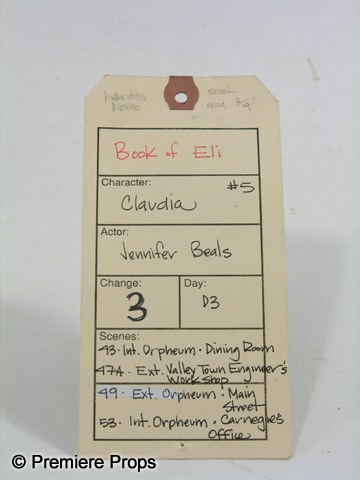 halterdress
kimono
shoot
mon 3/9
Book of Eli
Character:
#5
Claudia
Actor:
Jennifer Beals
Change:
3
Day:
D3
Scenes:
43 · Int. Orpheum · Dining Room
47A · Ext. Valley Town Engineer's
Workshop
49 · Ext. Orpheum · Main
Street
53 · Int. Orpheum · Carnegie's
Office
© Premiere Props